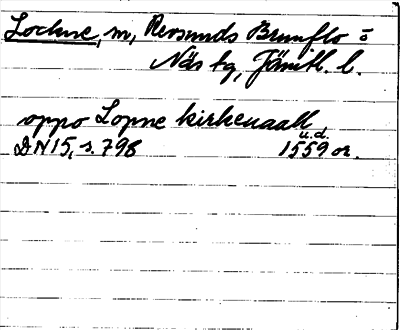 Lockne, m, Revsunds Brunflo o
Näs tg, Jämtl. l.
oppo Lopne kirkeuaall
DN 15, s. 798 u.d. 1559 or.